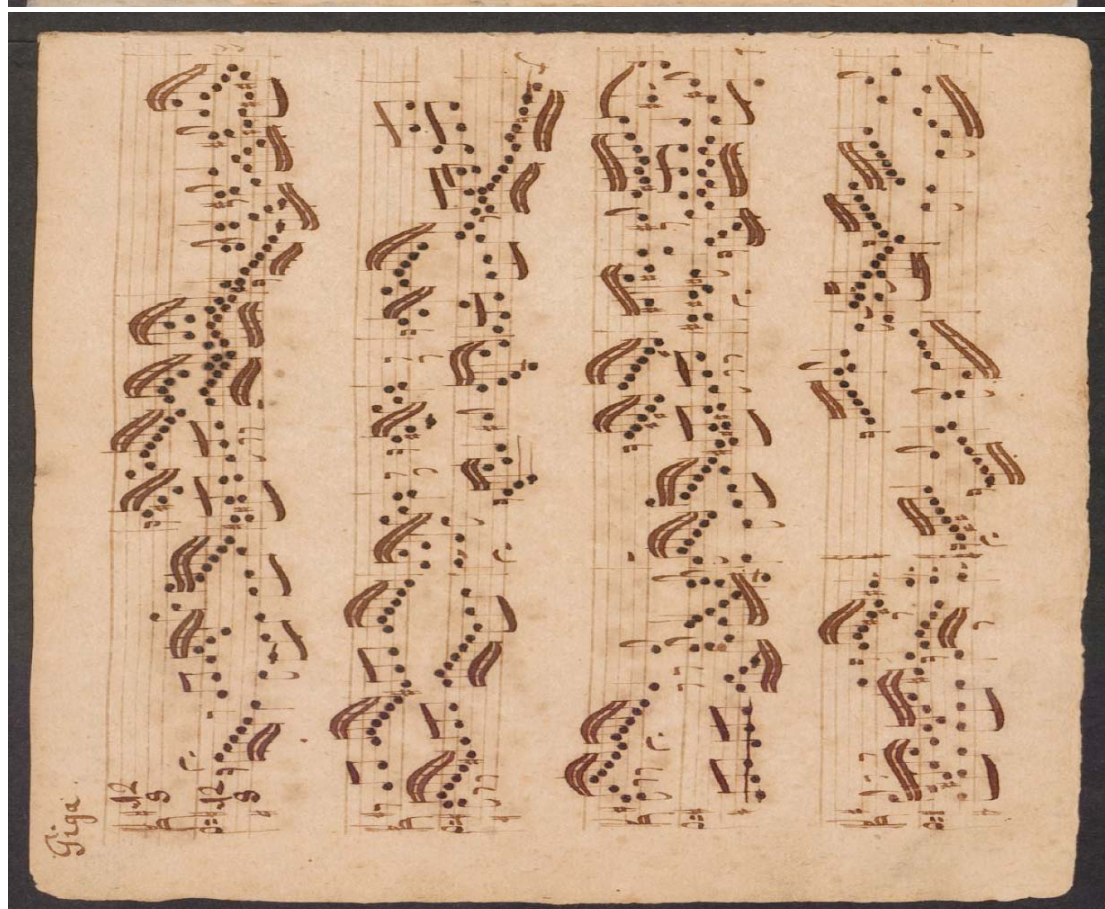 Giga.
12
8
12
8